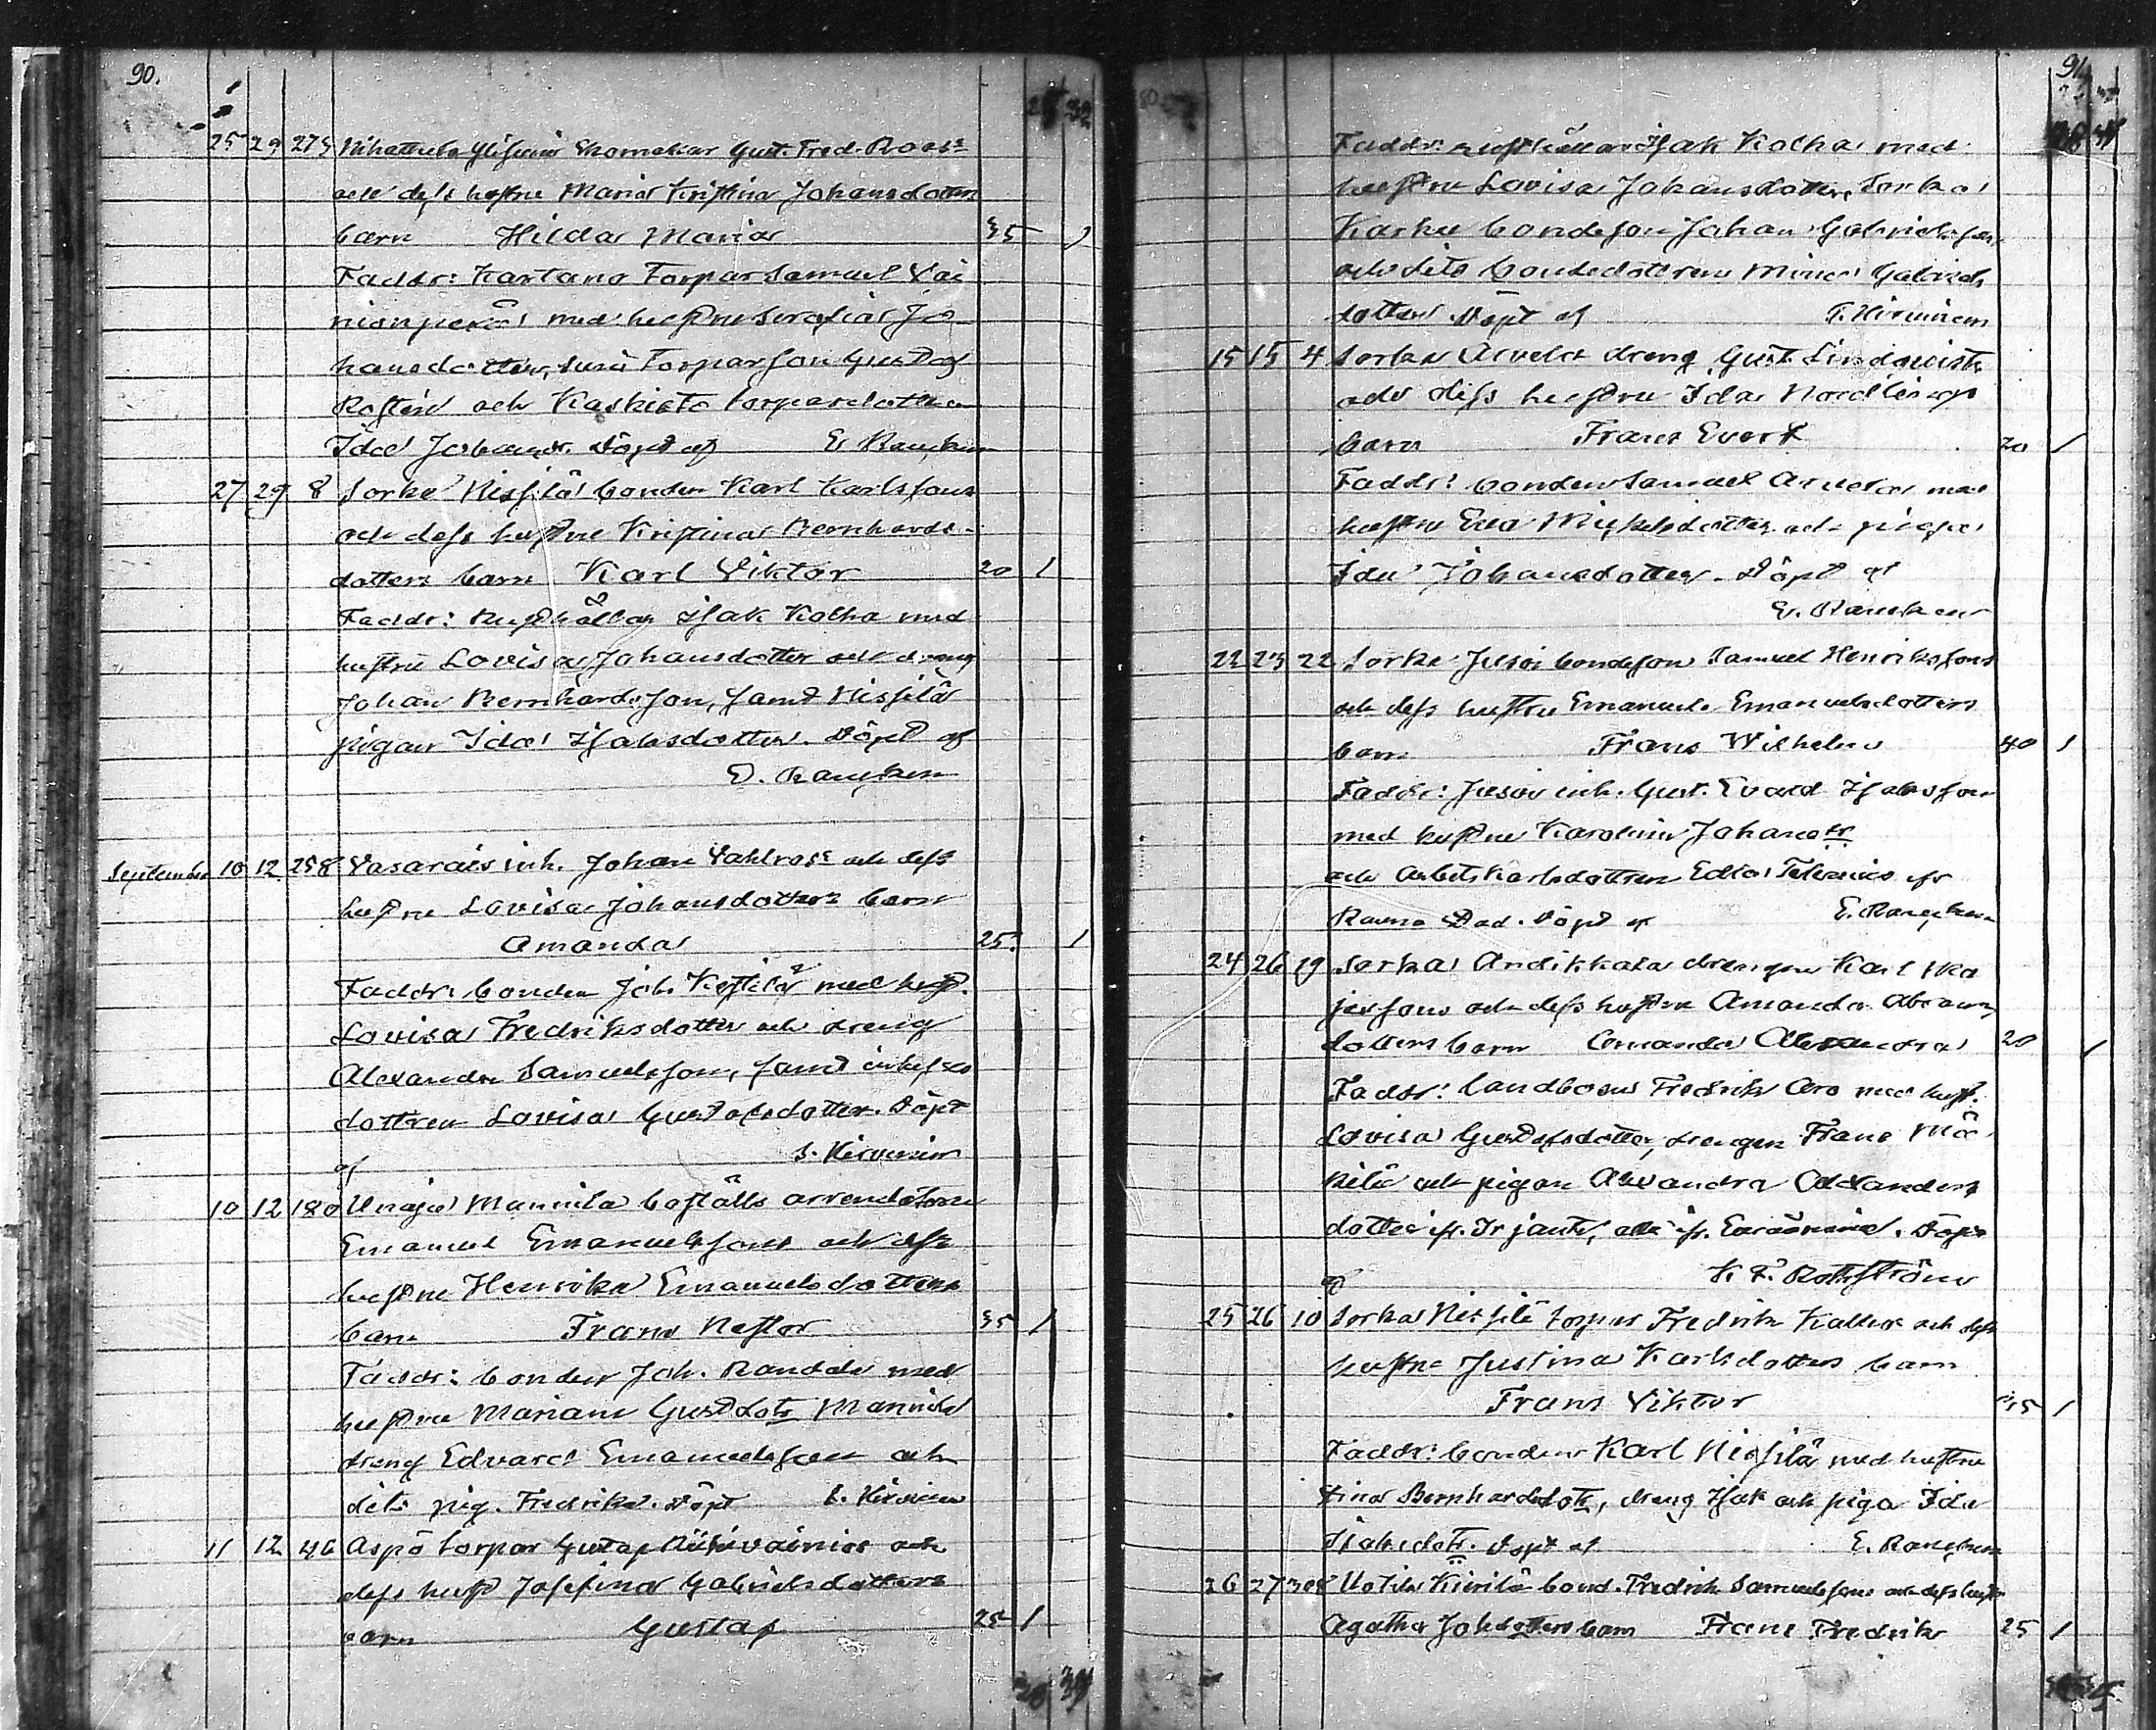 90.
25 29 273 Skomakar Gust. Fred. Roos
och dess hustru Maria Kristina Johansdotters
barn Hilda Maria 35 1
Faddr: Kartano Torpar Samuel
med hustru Serafia Jo
hansdotter, Torparson Gustaf
och Kaskisto torparedottern
Ida Johansdr. Döpt af E. Rancken
27 29 8 Sorka Nissilä bonden Karl Karlssons
och dess hustru Kristina Bernhards-
dotters barn Karl Viktor 20 1
Faddr: Rusthållar Isak Kolha med
hustru Lovisa Johansdotter och dreng
Johan Bernhardsson, samt Nissilä
pigan Ida Isaksdotter. Döpt af
E. Rancken
September 10 12 258 Vasarais inh. Johan Vahlros och dess
hustru Lovisa Johansdotters barn
Amanda 25 1
Faddr: bonden Joh. med hust.
Lovisa Fredriksdotter och dreng
Alexander Samuelsson, samt inhyses
dottren Lovisa Gustafsdotter. Döpt
af S. Hirvinen
10 12 180 Unaja Mannila boställs arrendatorn
Emanuel Emanuelssons och dess
hustru Henrika Emanuelsdotters
barn Frans Nestor 35 1
Faddr: bonden Joh. Randda med
hustru Mariana Gustdotr Mannila
dreng Edvard Emanuelsson och
dito pig. Fredrika. Döpt S. Hirvinen
11 12 46 Aspö torpar Gustaf och
dess hust Josefina Gabrielsdotters
barn Gustaf 25 1
91
Faddr: rusthållar Isak Kolha med
hustru Lovisa Johansdotter, Sorka
Karhu bondeson Johan Gabrielsson
och dito bondedottren Mina Gabriels
dotter. Döpt af S. Hirvinen
15 15 4 Sorka Arvela dreng Gust. Lindqvists
och dess hustru Ida Nordlings
barn Frans Evert 20 1
Faddr: bonden Samuel Arvela med
hustru Eva Mickelsdotter och pigan
Ida Johansdotter. Döpt af
E. Rancken
22 23 22 Sorka Jussi bondeson Samuel Henrikssons
och dess hustru Emanuela Emanuelsdotters
barn Frans Wilhelm 40 1
Faddr: Jussi inh. Gust. Evard Isaksson
med hustru Karolina Johansdr
och Arbetskarlsdottren Edla fr
Raumo stad. Döpt af E. Rancken
24 26 19 Sorka Anttikkala drengen Karl
och dess hustru Amanda Abrams
dotters barn Amanda Alexandra 20 1
Faddr: landboen Fredrik Aro med hust.
Lovisa Gustafsdotter, drengen Frans Mä
kilä och pigan Alexandra Alexanders
dotter fr. Irjante, alla fr. Euraåminne. Döpt
af K. F. Rothström
25 26 10 Sorka Nissilä torpar Fredrik Kallios och dess
hustru Justina Karlsdotters barn
Frans Viktor 35 1
Faddr: bonden Karl Nissilä med hustru
Stina Bernhardsdotr, dreng Isak och piga Ida
Isaksdotr. Döpt af E. Rancken
26 27 Uotila Kierilä bond. Fredrik Samuelssons och dess hustr
Agatha Johsdotters barn Frans Fredrik 25 1